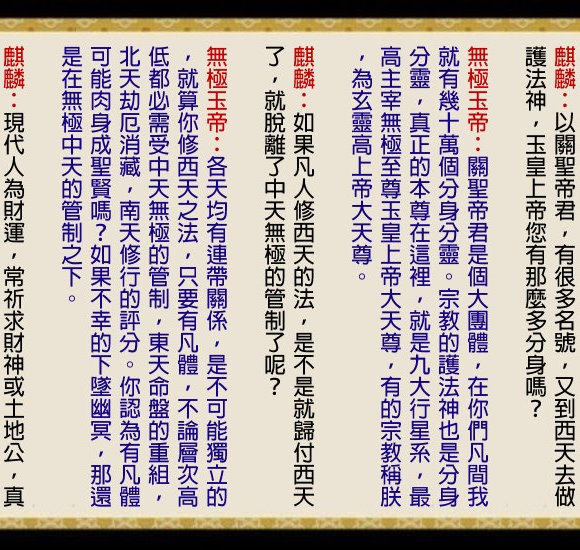 麒麟：以關聖帝君，有很多名號，又到西天去做
護法神，玉皇上帝您有那麼多分身嗎？
無極玉帝：關聖帝君是個大團體，在你們凡間我
就有幾十萬個分身分靈。宗教的護法神也是分身
分靈，真正的本尊在這裡，就是九大行星系，最
高主宰無極至尊玉皇上帝大天尊，有的宗教稱朕
，為玄靈高上帝大天尊。
麒麟：如果凡人修西天的法，是不是就歸付西天
了，就脫離了中天無極的管制了呢？
無極玉帝：各天均有連帶關係，是不可能獨立的
，就算你修西天之法，只要有凡體，不論層次高
低都必需受中天無極的管制，東天命盤的重組，
北天劫厄消藏，南天修行的評分。你認為有凡體
可能肉身成聖賢嗎？如果不幸的下墜幽冥，那還
是在無極中天的管制之下。
麒麟：現代人為財運，常祈求財神或土地公，真